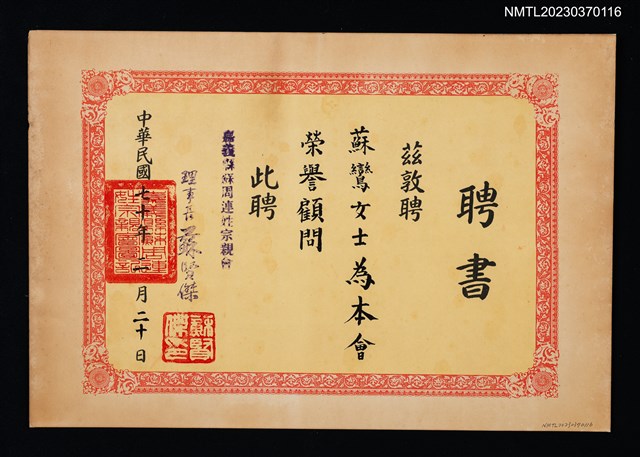 NMTL20230370116
聘書
茲敦聘
蘇鸞女士為本會
榮譽顧問
此聘
嘉義縣蘇周連姓宗親會
理事長 蘇賢傑
中華民國七十年 月二十日